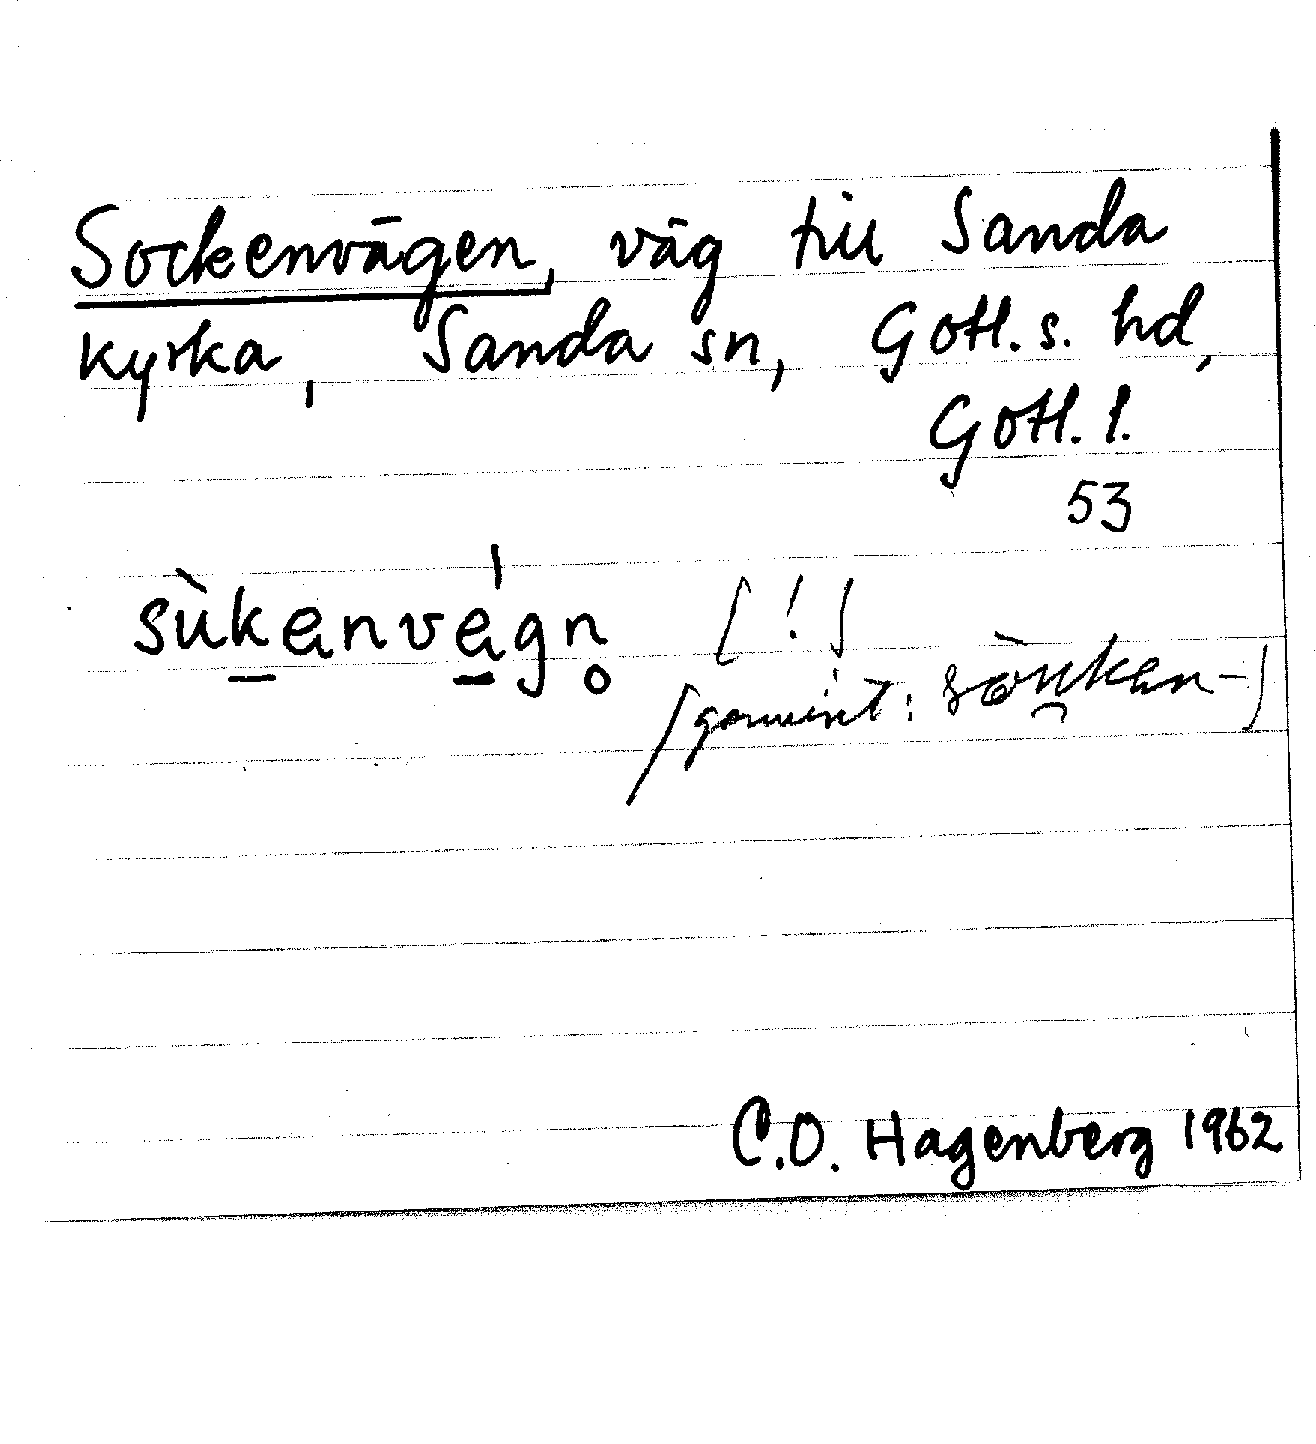 Sockenvägen, väg till Sanda
kyrka, Sanda sn, Gotl. s. hd,
Gotl. l.
53
sù̱kənvə̱́gn̥ [!]
[gemeint: sòu̯kən-]
C.O. Hagenberg 1962